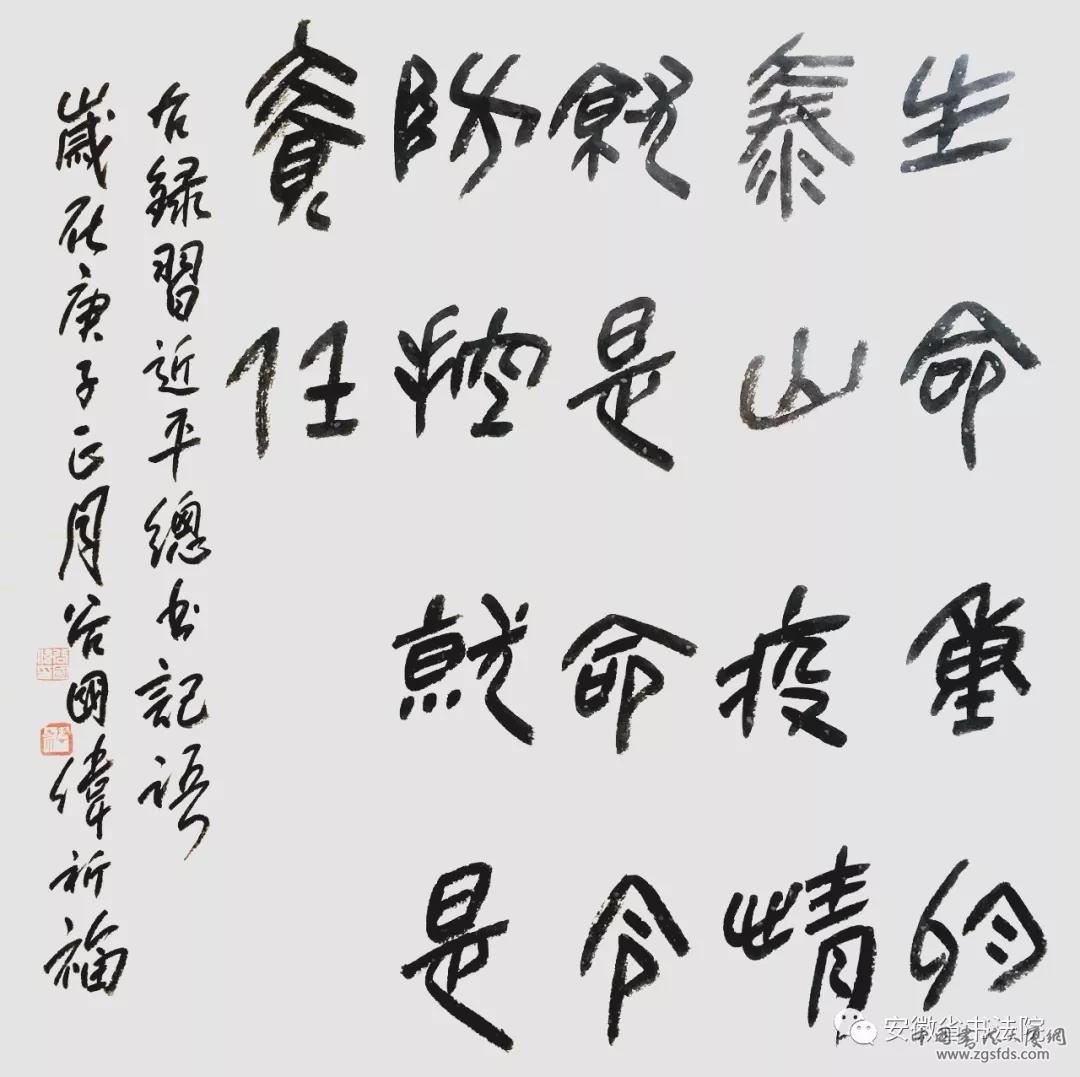 生命重於
泰山疫情
就是命令
防控就是
責任
右録習近平總書記語
歲在庚子正月谷國偉祈福
安徽省书法院
中国書法大廈網
www.zgsfds.com